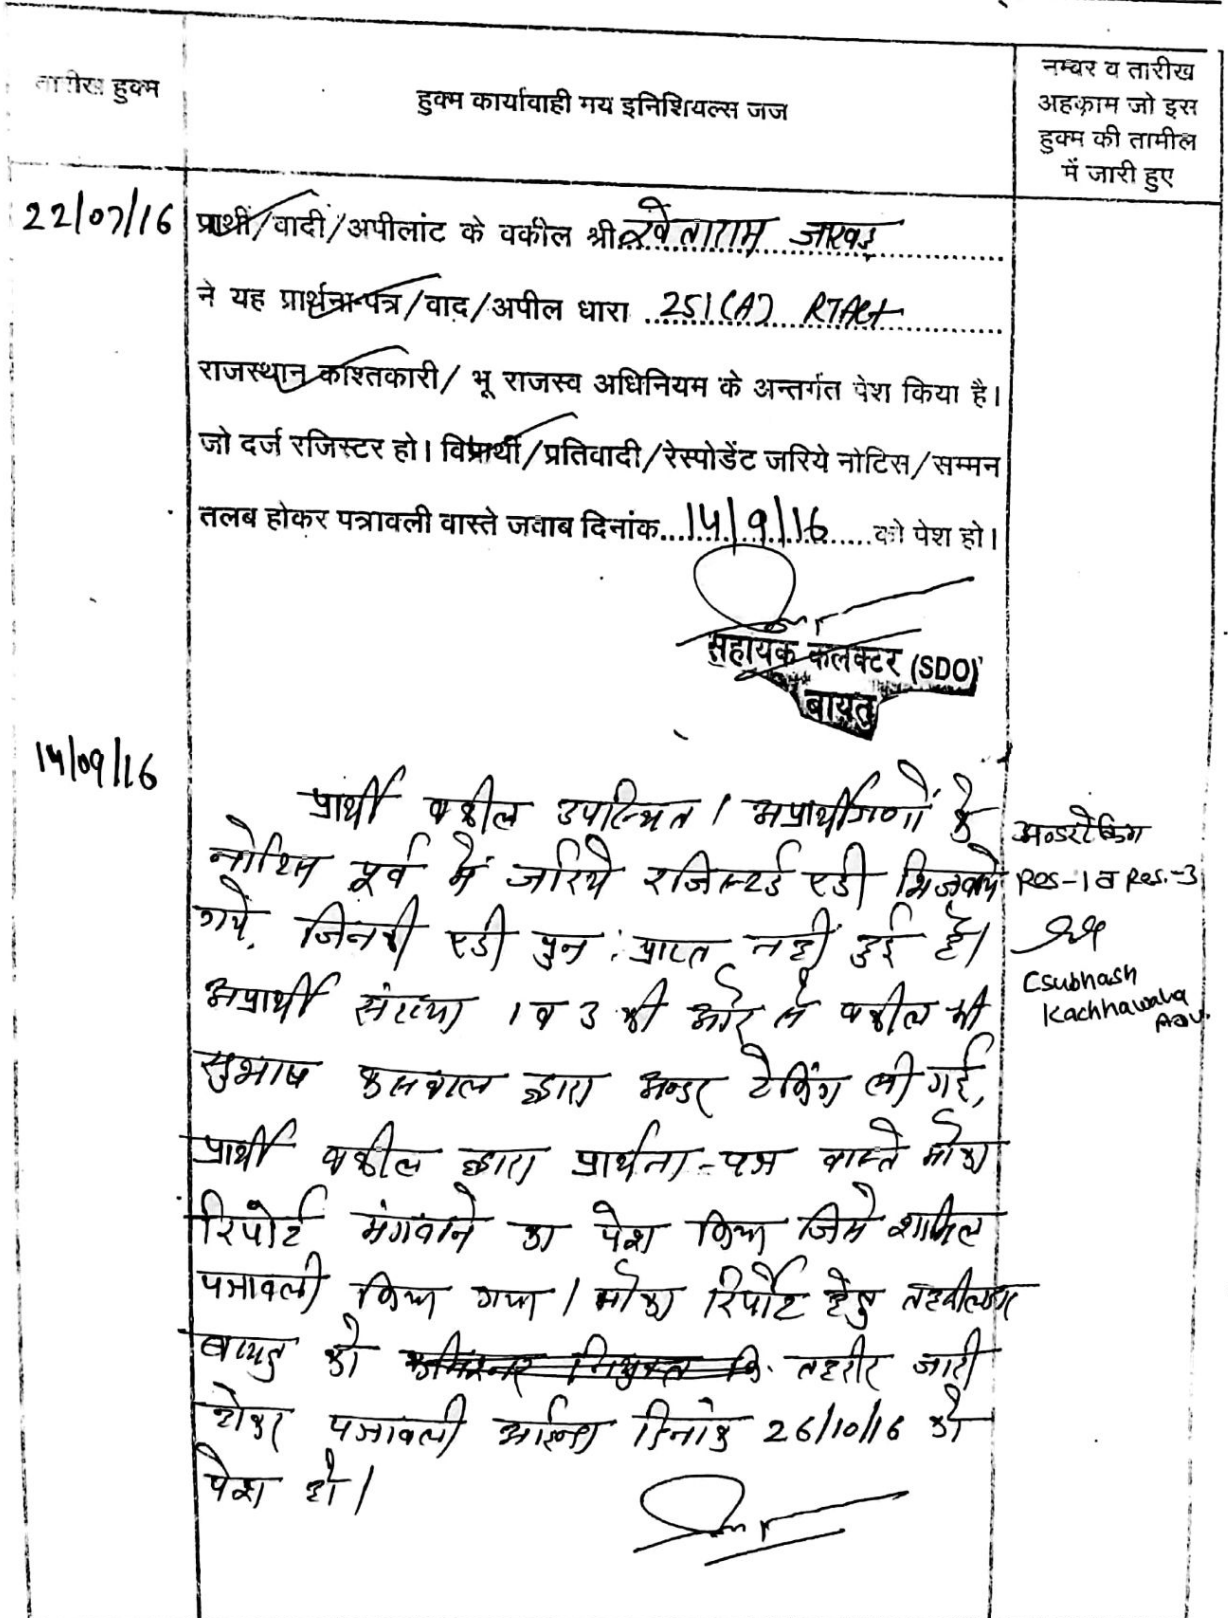 तारीख हुक्म
हुक्म कार्यावाही मय इनिशियल्स जज
नम्बर व तारीख
अहकाम जो इस
हुक्म की तामील
में जारी हुए
22/07/16
प्रार्थी/वादी/अपीलांट के वकील श्री खेताराम जाखड़
ने यह प्रार्थना-पत्र/वाद/अपील धारा 251(A) RTAct
राजस्थान काश्तकारी/ भू राजस्व अधिनियम के अन्तर्गत पेश किया है।
जो दर्ज रजिस्टर हो। विप्रार्थी/प्रतिवादी/रेस्पोडेंट जरिये नोटिस/सम्मन
तलब होकर पत्रावली वास्ते जवाब दिनांक....14/9/16.....को पेश हो।
सहायक कलक्टर (SDO)
बायतु
14/09/16
प्रार्थी वकील उपस्थित। अप्रार्थीगणों के
नोटिस पूर्व में जरिये रजिस्टर्ड एडी भिजवाये
गये, जिनकी एडी पुन: प्राप्त नहीं हुई है।
अप्रार्थी संख्या 1 व 3 की ओर से वकील श्री
सुभाष द्वारा अन्डर टेकिंग ली गई,
प्रार्थी वकील द्वारा प्रार्थना-पत्र वास्ते मौका
रिपोर्ट मंगवाने का पेश किया जिसे शामिल
पत्रावली किया गया। मौका रिपोर्ट हेतु तहसीलदार
बायतु को कमिश्नर नियुक्त कि. तहरीर जारी
होकर पत्रावली आईन्दा दिनांक 26/10/16 को
पेश हो।
अन्डरटेकिंग
Res-1 व Res.-3
(Subhash
Kachhawaha
Adv.